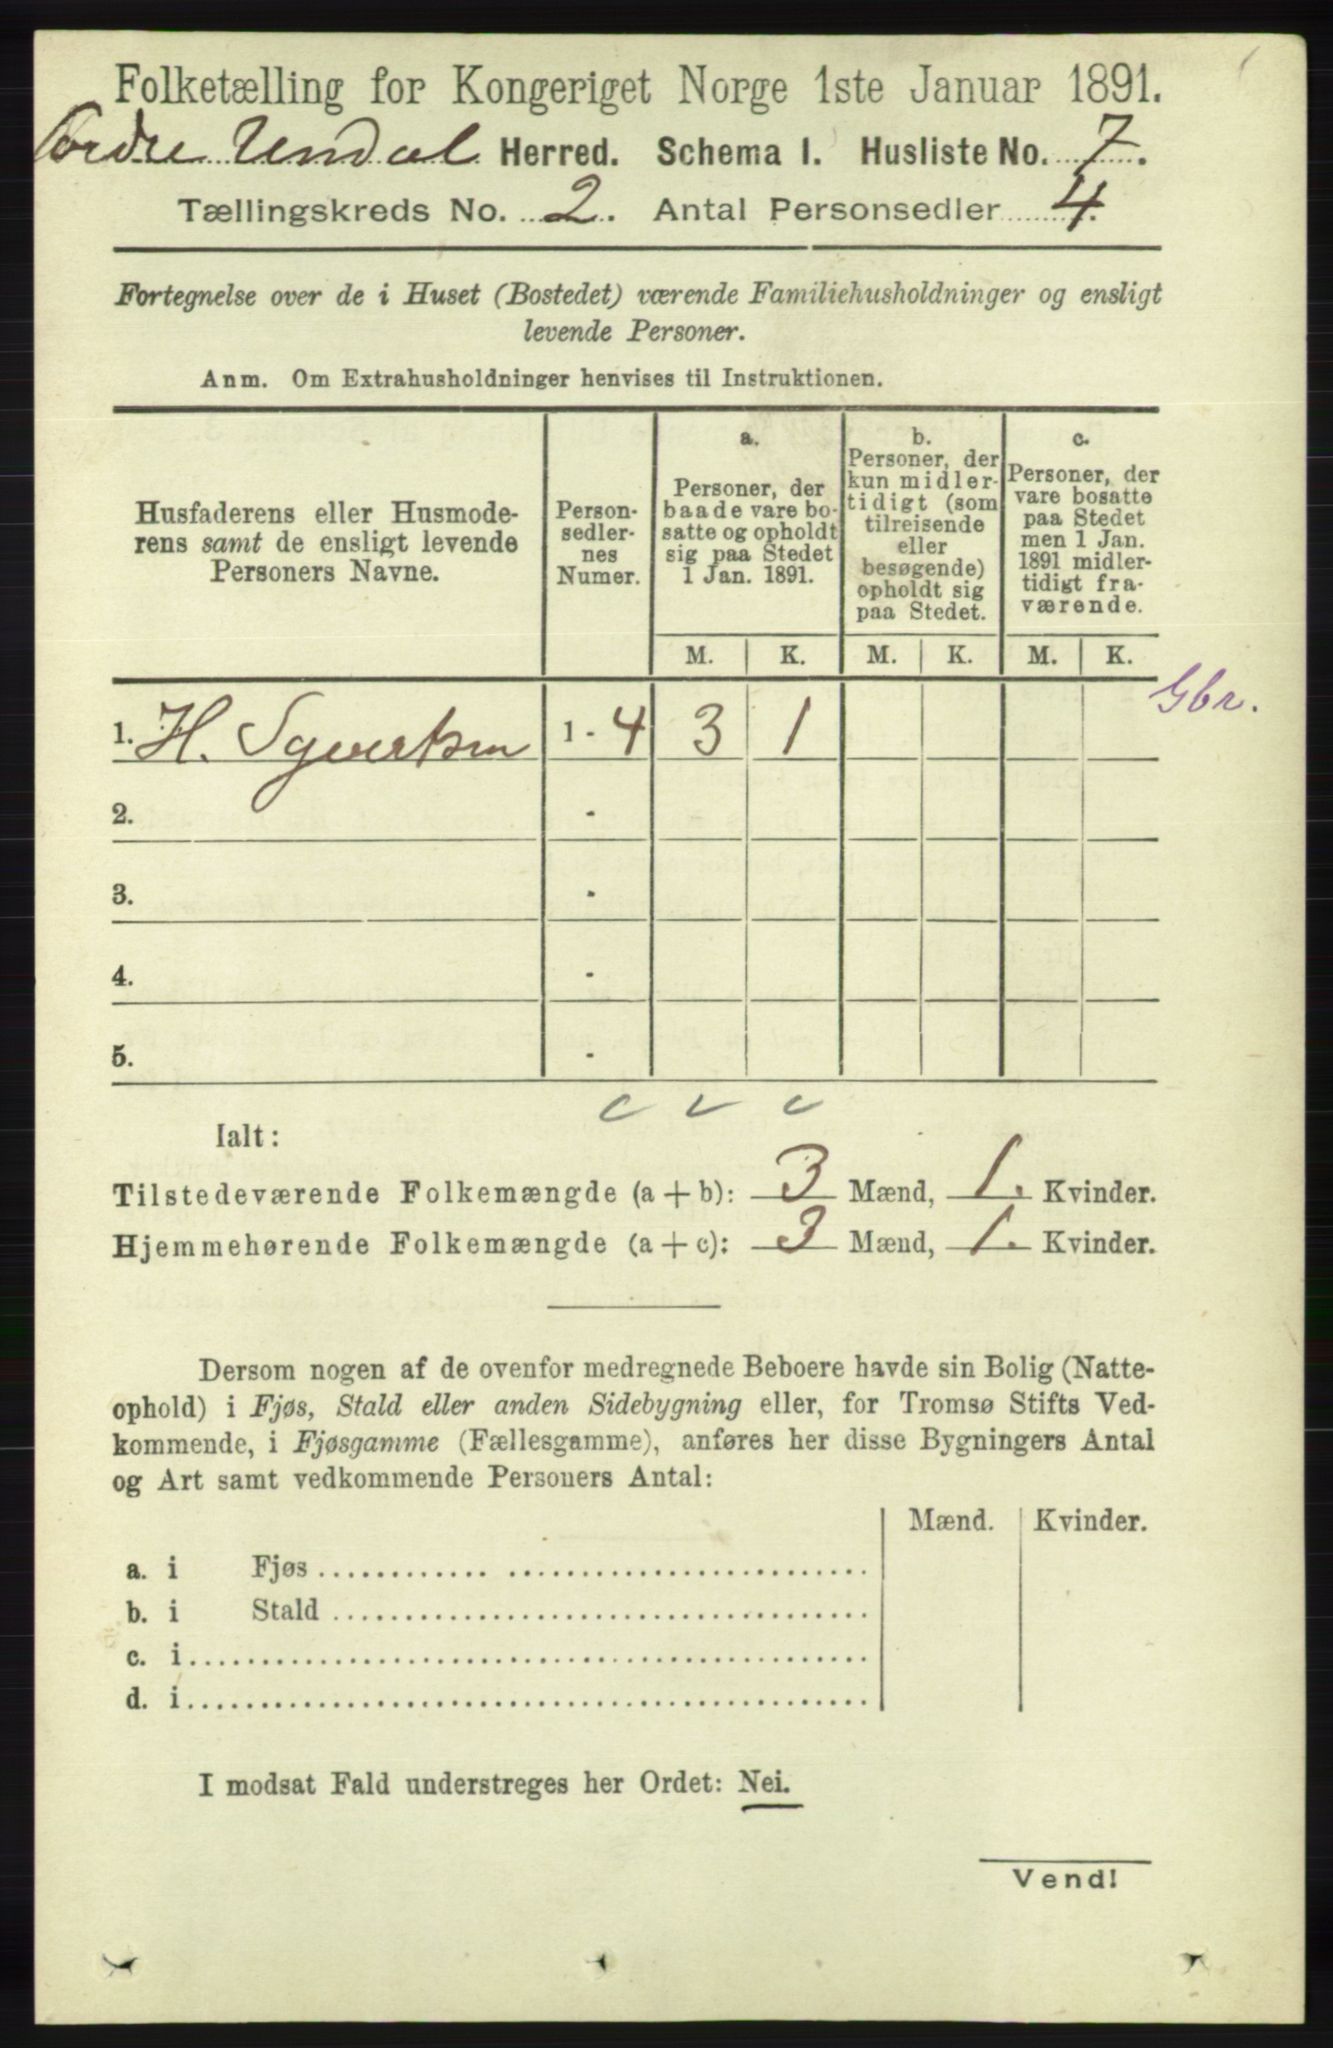 Folketælling for Kongeriget Norge 1ste Januar 1891.
Undal Herred. Schema 1. Husliste No. 7.
Tællingskreds No. 2. Antal Personsedler 4.
Fortegnelse over de i Huset (Bostedet) værende Familiehusholdninger og ensligt
levende Personer.
Anm. Om Extrahusholdninger henvises til Instruktionen.
Husfaderens eller Husmode-
rens samt de ensligt levende
Personers Navne.
Person-
sedler-
nes
Numer.
a.
Personer, der
baade vare bo-
satte og opholdt
sig paa Stedet
1 Jan. 1891.
b.
Personer, der
kun midler-
tidigt (som
tilreisende
eller
besøgende)
opholdt sig
paa Stedet.
c.
Personer, der
vare bosatte
paa Stedet
men 1 Jan.
1891 midler-
tidigt fra-
værende.
M. K. M. K. M. K.
Gbr.
1. H. 1 - 4 3 1
2. -
3. -
4. -
5. -
Ialt:
Tilstedeværende Folkemængde (a + b): 3 Mænd, 1. Kvinder.
Hjemmehørende Folkemængde (a + c): 3 Mænd, 1. Kvinder.
Dersom nogen af de ovenfor medregnede Beboere havde sin Bolig (Natte-
ophold) i Fjøs, Stald eller anden Sidebygning eller, for Tromsø Stifts Ved-
kommende, i Fjøsgamme (Fællesgamme), anføres her disse Bygningers Antal
og Art samt vedkommende Personers Antal:
Mænd. Kvinder.
a. i Fjøs
b. i Stald
c. i
d. i
I modsat Fald understreges her Ordet: Nei.
Vend!